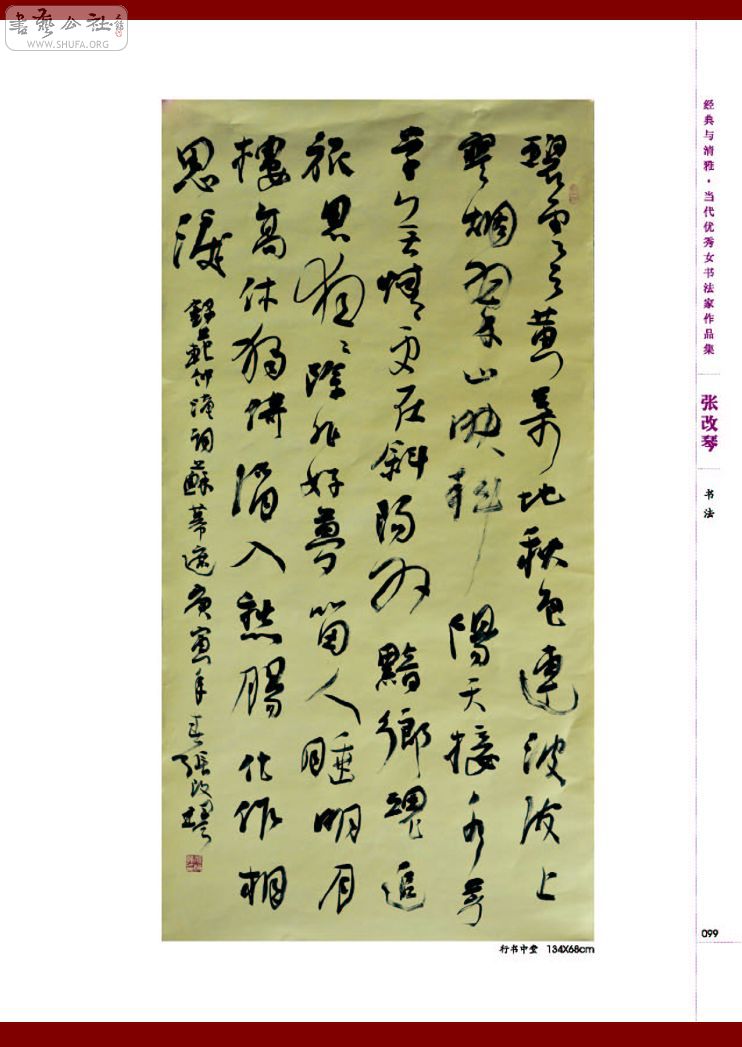 書藝公社
WWW.SHUFA.ORG
碧雲天黄葉地秋色連波波上
寒烟翠山映斜陽天接水芳
草無情更在斜陽外黯鄉魂追
旅思夜夜除非好夢留人睡明月
樓高休獨倚酒入愁腸化作相
思淚
錄范仲淹詞蘇幕遮庚寅年春張改琴
行书中堂 134X68cm
经典与清雅·当代优秀女书法家作品集
张改琴
书法
099